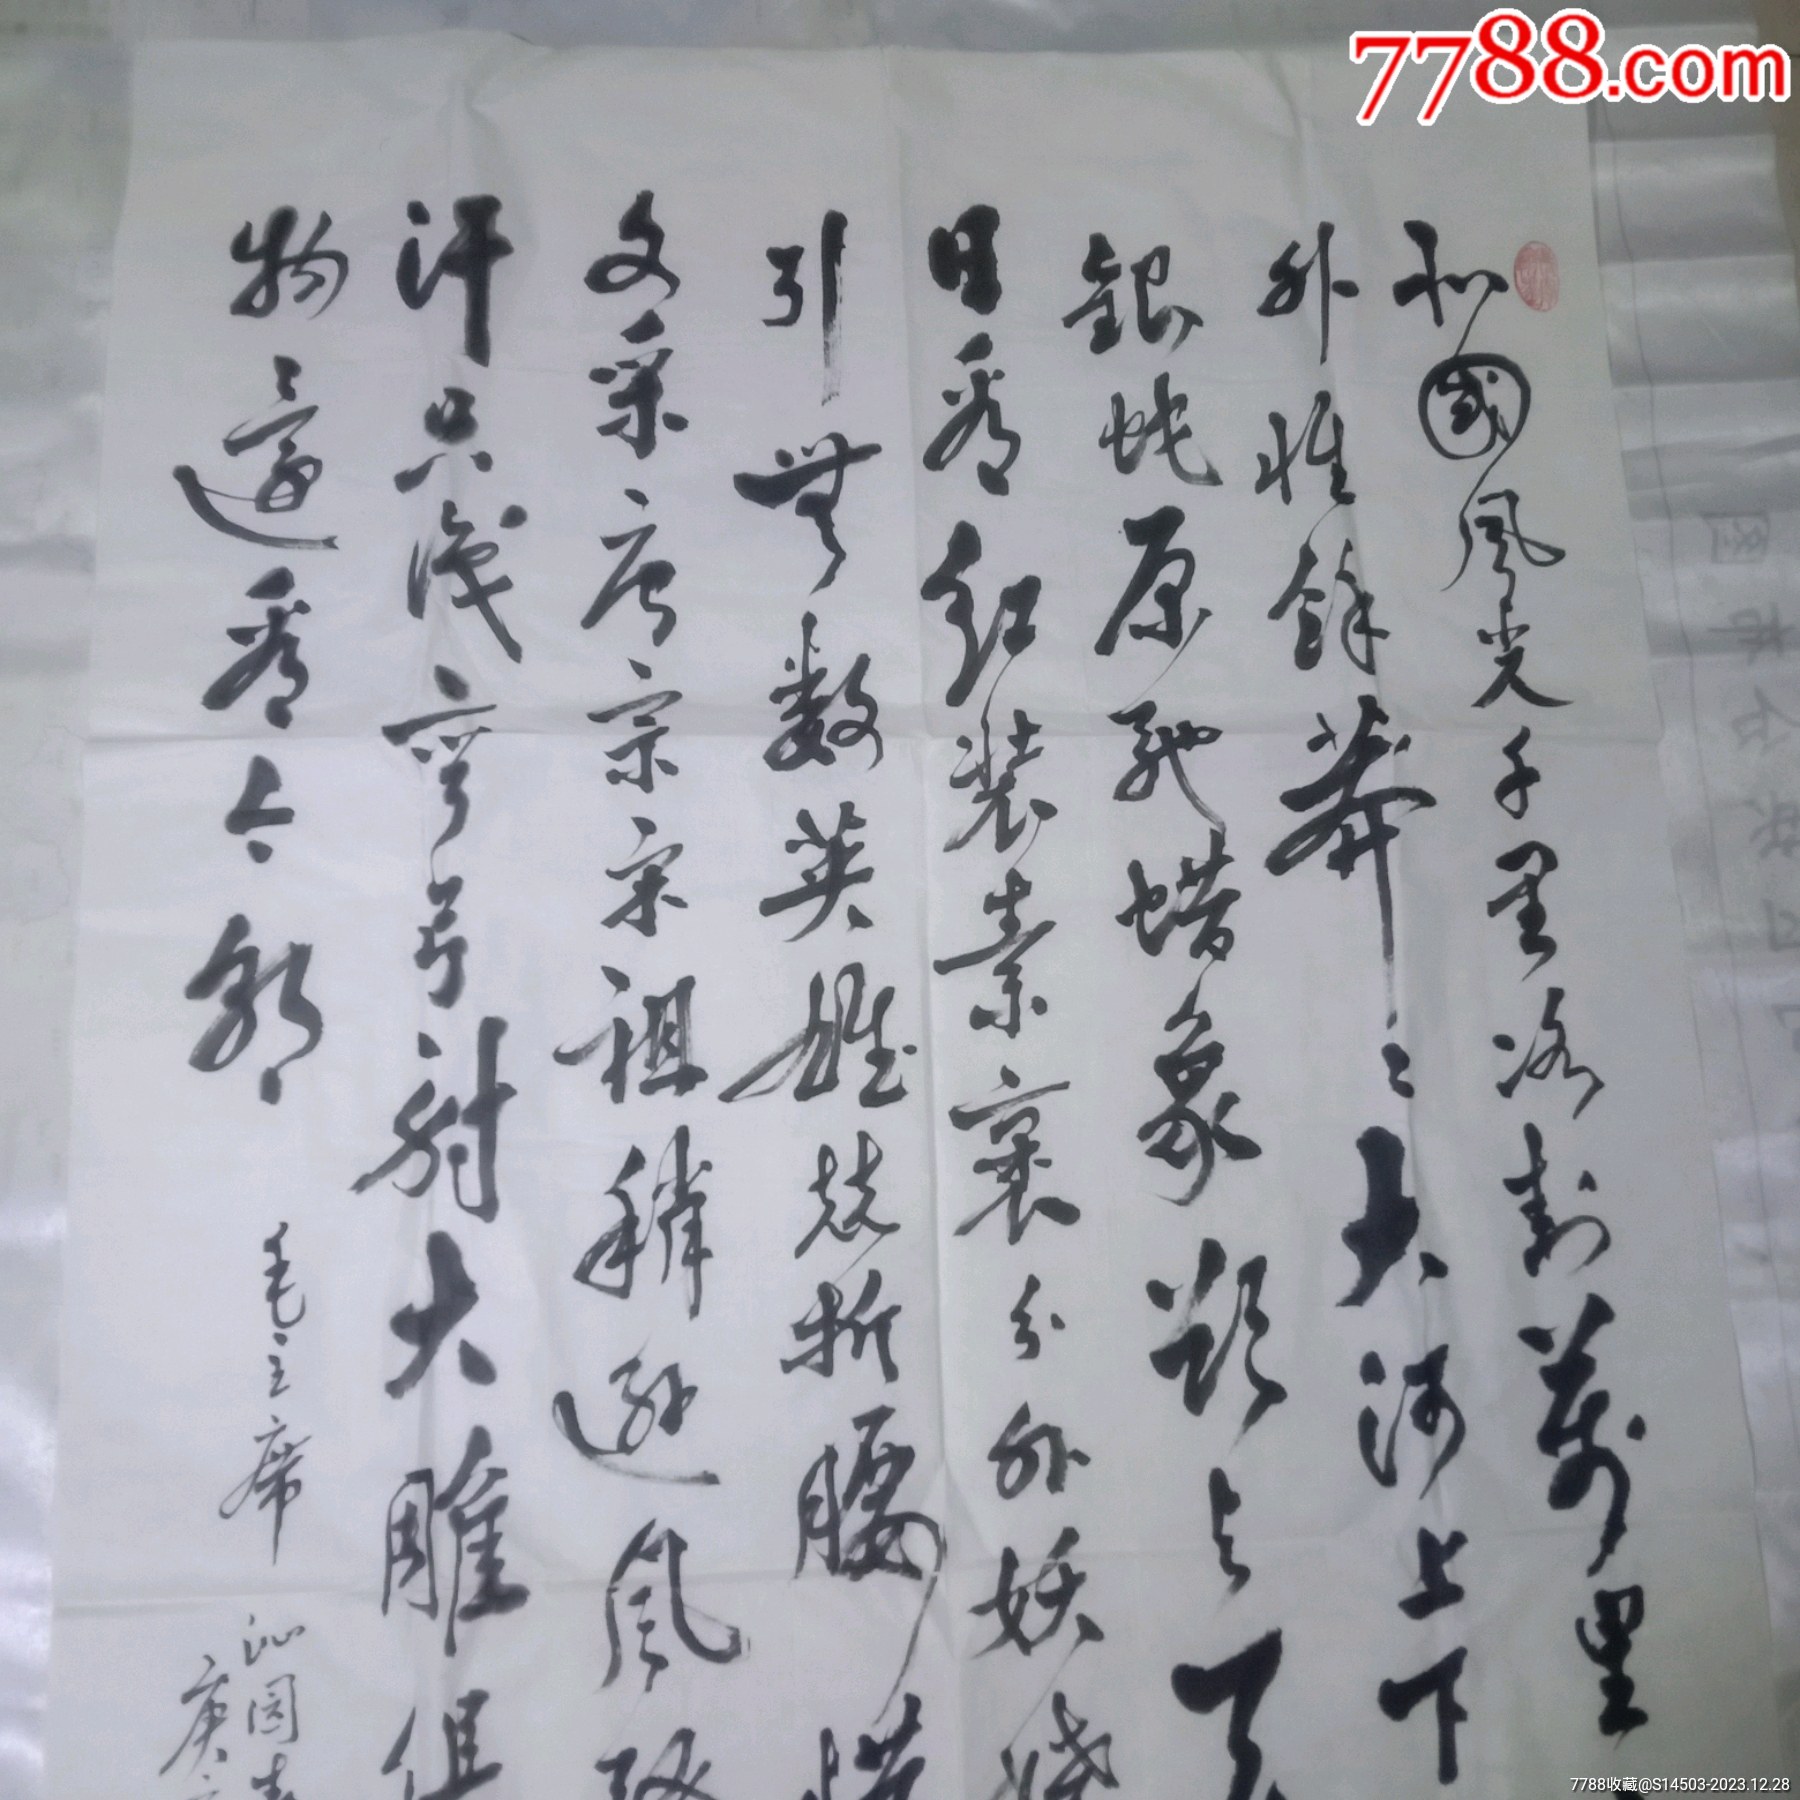 7788.com
北國風光千里冰封萬里
外惟餘莽〻大河上下
銀蛇原馳蜡象欲与天
日看红装素裹分外妖娆
引無数英雄競折腰惜
文采唐宗宋祖稍遜風騷
汗只識彎弓射大雕俱
物還看今朝
毛主席
沁園春
庚
7788收藏@S14503-2023.12.28